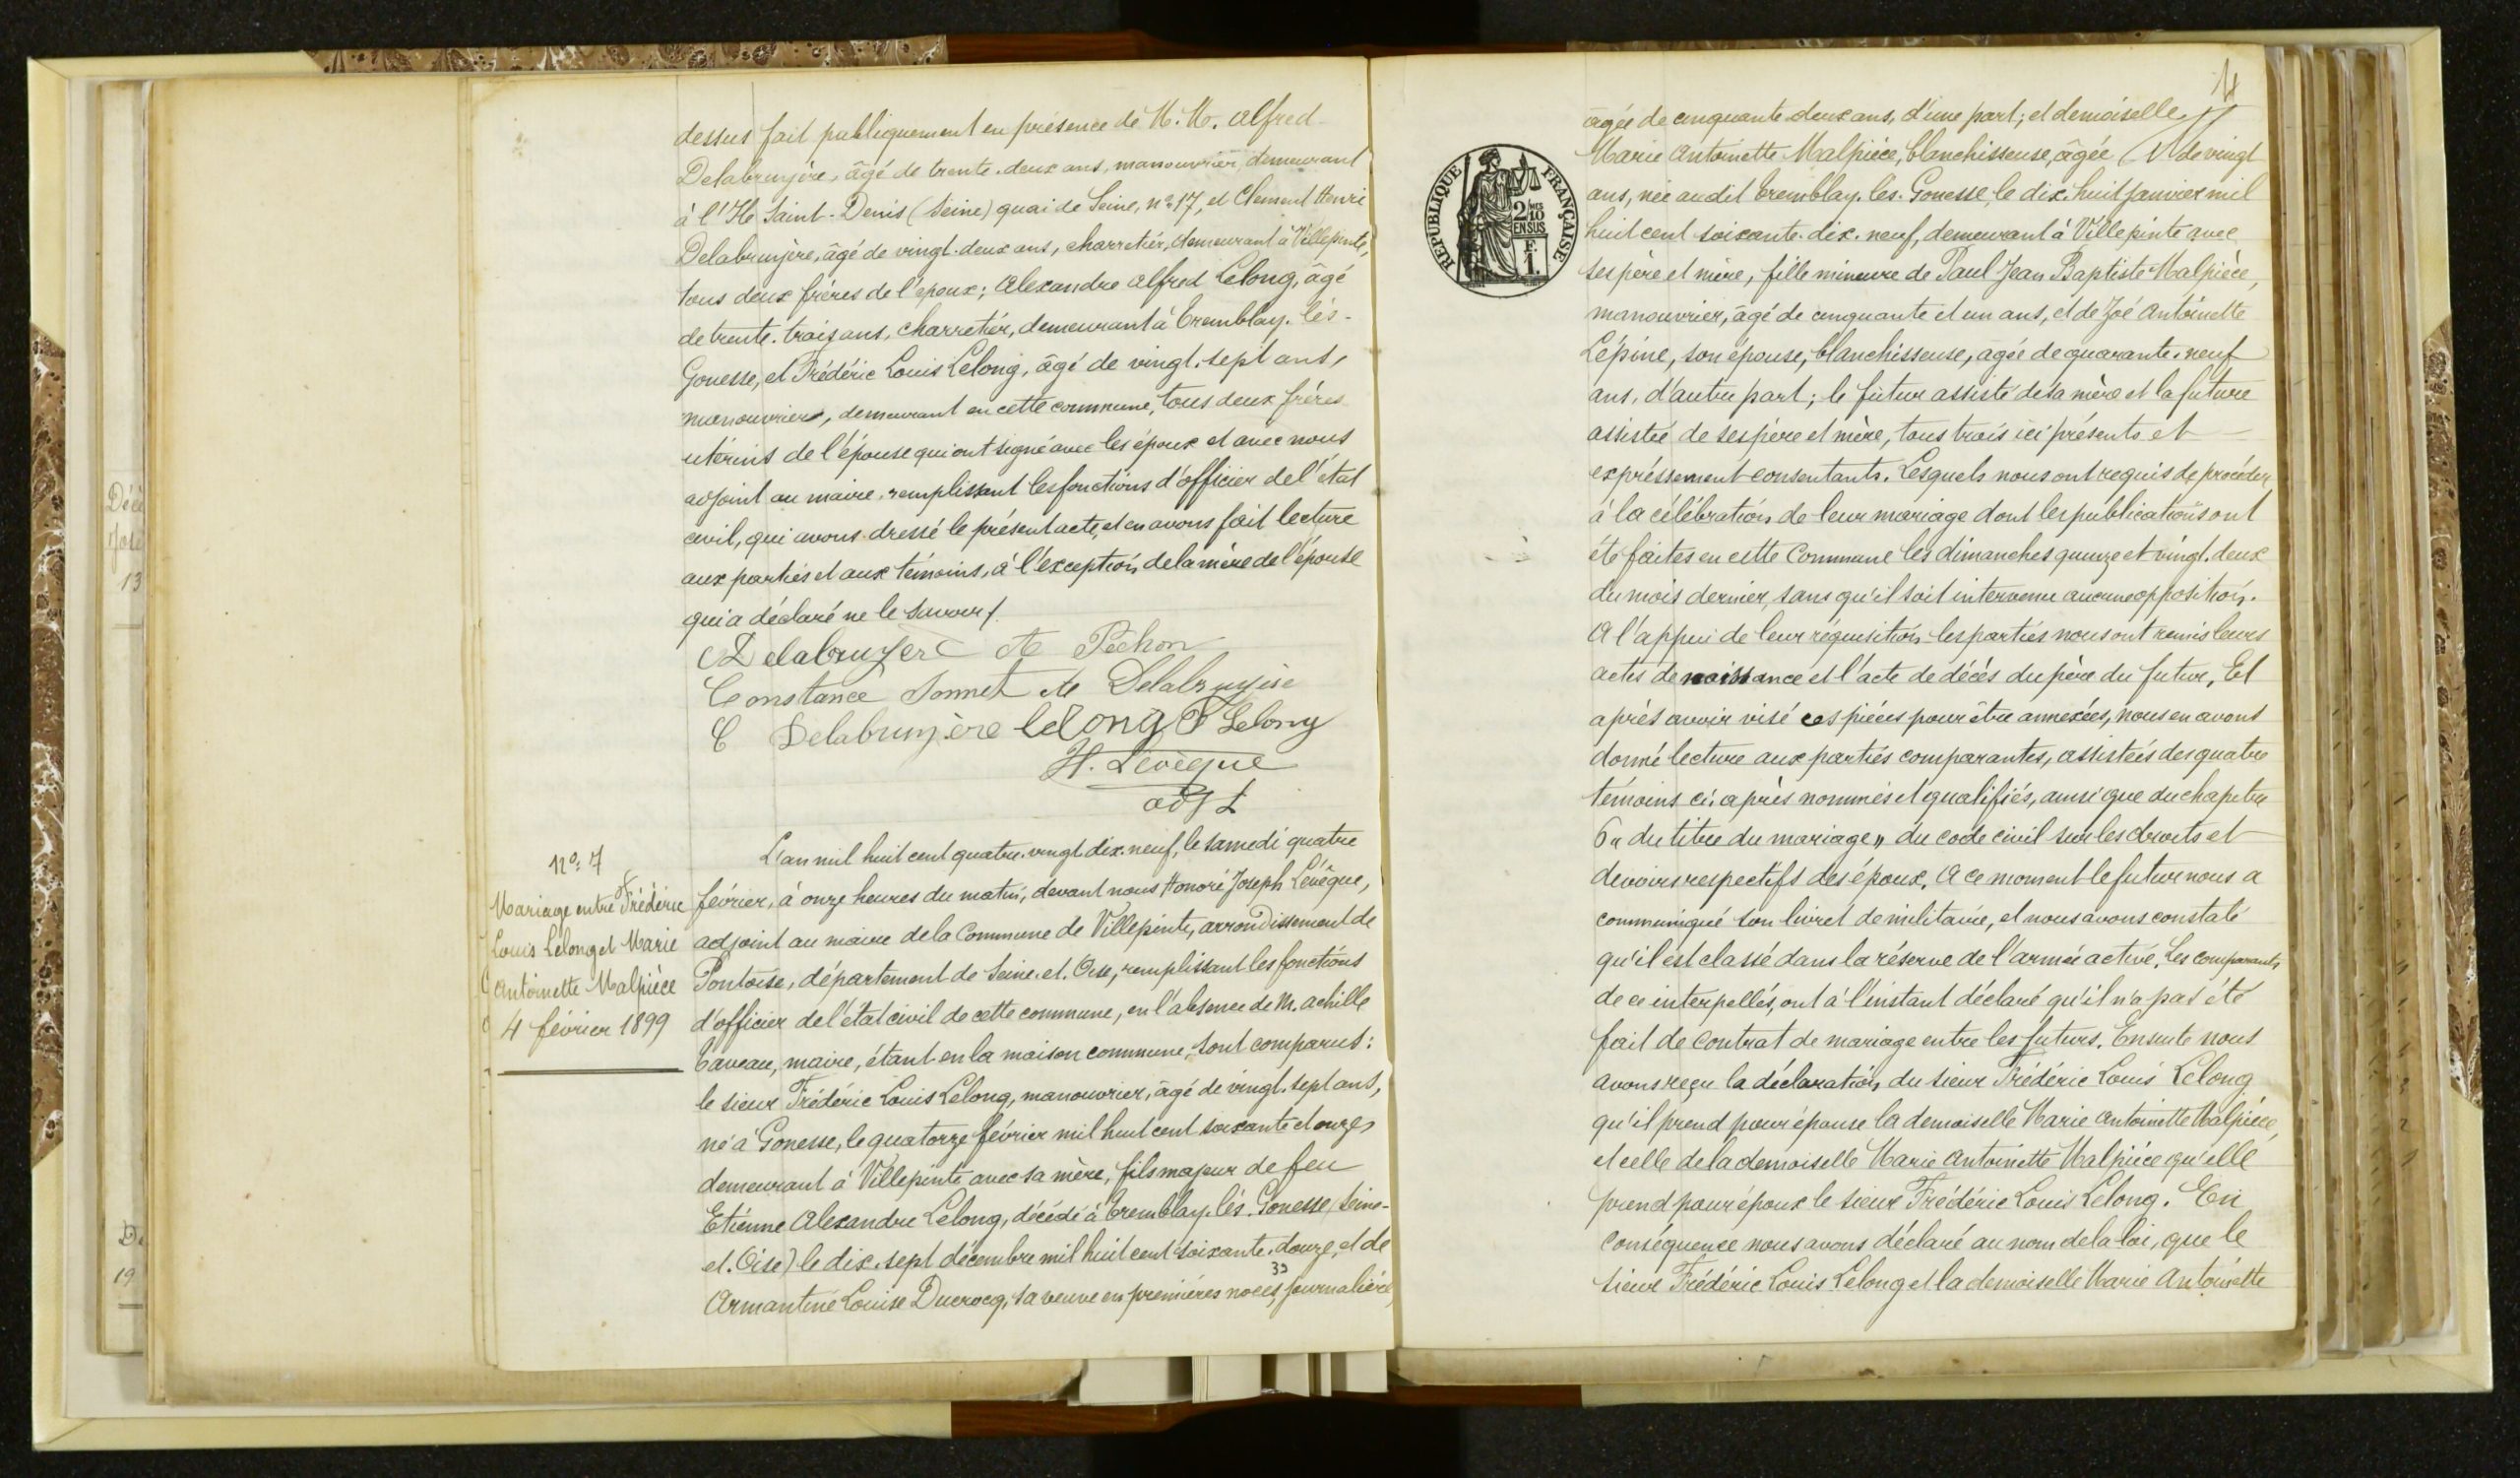 dessus fait publiquement en présence de M. M. Alfred
Delabruyère, âgé de trente-deux ans, manouvrier, demeurant
à l'Ile Saint-Denis (Seine) quai de Seine, n° 17, et Clément Henri
Delabruyère, âgé de vingt-deux ans, charretier, demeurant à Villepinte,
tous deux frères de l'époux; Alexandre Alfred Lelong, âgé
de trente-trois ans, charretier, demeurant à Tremblay-lès-
Gonesse, et Frédéric Louis Lelong, âgé de vingt-sept ans,
manouvrier, demeurant en cette commune, tous deux frères
utérins de l'épouse qui ont signé avec les époux et avec nous
adjoint au maire remplissant les fonctions d'officier de l'état
civil, qui avons dressé le présent acte, et en avons fait lecture
aux parties et aux témoins, à l'exception de la mère de l'épouse
qui a déclaré ne le savoir.
Delabruyere A Péchon
Constance Sonnet A Delabruyère
C Delabruyère lelong F Lelong
H. Levêque
adjt
N° 7
Mariage entre Frédéric
Louis Lelong et Marie
Antoinette Malpièce
4 février 1899
L'an mil huit cent quatre-vingt-dix-neuf, le samedi quatre
février, à onze heures du matin, devant nous Honoré Joseph Levêque,
adjoint au maire de la Commune de Villepinte, arrondissement de
Pontoise, département de Seine-et-Oise, remplissant les fonctions
d'officier de l'état civil de cette commune, en l'absence de M. Achille
Caveau, maire, étant en la maison commune, sont comparus:
le sieur Frédéric Louis Lelong, manouvrier, âgé de vingt-sept ans,
né à Gonesse, le quatorze février mil huit cent soixante et onze,
demeurant à Villepinte avec sa mère, fils majeur de feu
Etienne Alexandre Lelong, décédé à Tremblay-lès-Gonesse (Seine-
et-Oise) le dix-sept décembre mil huit cent soixante-douze, et de
Armantine Louise Ducrocq, sa veuve en premières noces, journalière,
4
âgée de cinquante-deux ans, d'une part; et demoiselle
Marie Antoinette Malpièce, blanchisseuse, âgée de vingt
ans, née audit Tremblay-les-Gonesse, le dix-huit janvier mil
huit cent soixante-dix-neuf, demeurant à Villepinte avec
ses père et mère, fille mineure de Paul Jean Baptiste Malpièce,
manouvrier, âgé de cinquante et un ans, et de Zoé Antoinette
Lépine, son épouse, blanchisseuse, âgée de quarante-neuf
ans, d'autre part; le futur assisté de sa mère et la future
assistée de ses père et mère, tous trois ici présents et
expressément consentants. Lesquels nous ont requis de procéder
à la célébration de leur mariage dont les publications ont
été faites en cette Commune les dimanches quinze et vingt-deux
du mois dernier, sans qu'il soit intervenu aucune opposition.
A l'appui de leur réquisition les parties nous ont remis leurs
actes de naissance et l'acte de décès du père du futur, Et
après avoir visé ces pièces pour être annexées, nous en avons
donné lecture aux parties comparantes, assistées des quatre
témoins ci-après nommés et qualifiés, ainsi que du chapitre
6 "du titre du mariage" du code civil sur les droits et
devoirs respectifs des époux. A ce moment le futur nous a
communiqué son livret de militaire, et nous avons constaté
qu'il est classé dans la réserve de l'armée active. Les comparants
de ce interpellés, ont à l'instant déclaré qu'il n'a pas été
fait de contrat de mariage entre les futurs. Ensuite nous
avons reçu la déclaration du sieur Frédéric Louis Lelong
qu'il prend pour épouse la demoiselle Marie Antoinette Malpièce,
et celle de la demoiselle Marie Antoinette Malpièce qu'elle
prend pour époux le sieur Frédéric Louis Lelong. En
conséquence nous avons déclaré au nom de la loi, que le
sieur Frédéric Louis Lelong et la demoiselle Marie Antoinette
RÉPUBLIQUE FRANÇAISE
2/10 MES
EN SUS
F.
1.
Décè
Jose
13
D
19